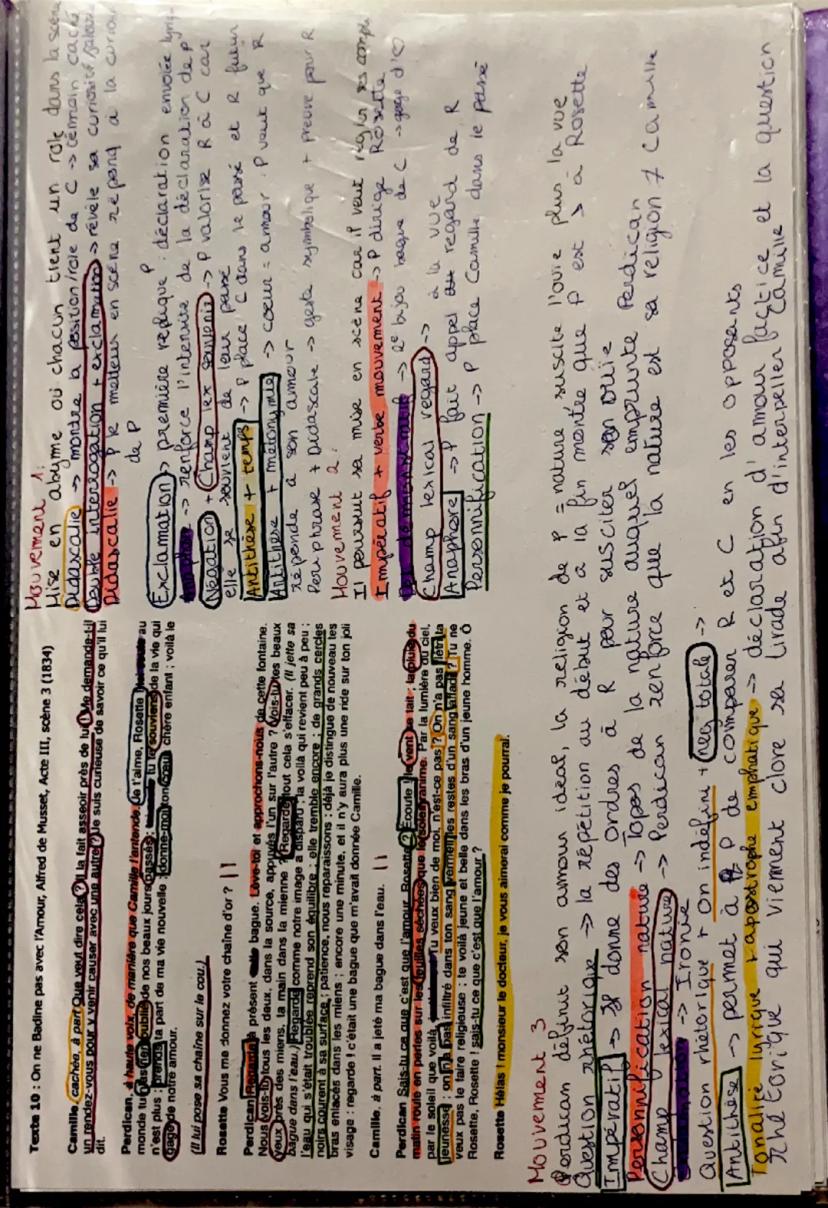 Texte 10 : On ne Badine pas avec l'Amour, Alfred de Musset, Acte III, scène 3 (1834)
Camille cachée, à part Que veut dire cela ? Il la fait asseoir près de lui ? Me demande-t-il
un rendez-vous pour y venir causer avec une autre ? Je suis curieuse de savoir ce qu'il lui
dit.
Perdican, à haute voix, de manière que Camille l'entende. Je t'aime, Rosette ! au
monde tu n'as rien oublié de nos beaux jours passés ; tu te souviens de la vie qui
n'est plus ; prends ta part de ma vie nouvelle ; donne-moi ton cœur, chère enfant ; voilà le
gage de notre amour.
(Il lui pose sa chaîne sur le cou.)
Rosette Vous me donnez votre chaîne d'or ? ||
Perdican Regarde à présent cette bague. Lève-toi et approchons-nous de cette fontaine.
Nous vois-tu tous les deux, dans la source, appuyés l'un sur l'autre ? Vois-tu tes beaux
yeux près des miens, ta main dans la mienne ? Regarde tout cela s'effacer. (Il jette sa
bague dans l'eau.) Regarde comme notre image a disparu ; la voilà qui revient peu à peu ;
l'eau qui s'était troublée reprend son équilibre ; elle tremble encore ; de grands cercles
noirs courent à sa surface ; patience, nous reparaissons ; déjà je distingue de nouveau tes
bras enlacés dans les miens ; encore une minute, et il n'y aura plus une ride sur ton joli
visage : regarde ! c'était une bague que m'avait donnée Camille.
Camille, à part. Il a jeté ma bague dans l'eau. ||
Perdican Sais-tu ce que c'est que l'amour, Rosette ? Écoute ! le vent se tait ; la pluie du
matin roule en perles sur les feuilles séchées que le soleil ranime. Par la lumière du ciel,
par le soleil que voilà, Tu veux bien de moi, n'est-ce pas ? On n'a pas flétri ta
jeunesse ; on n'a pas infiltré dans ton sang vermeil les restes d'un sang affadi ? Tu ne
veux pas te faire religieuse ; te voilà jeune et belle dans les bras d'un jeune homme. Ô
Rosette, Rosette ! sais-tu ce que c'est que l'amour ?
Rosette Hélas ! monsieur le docteur, je vous aimerai comme je pourrai.
Mouvement 1 :
Mise en abyme où chacun tient un role dans la scène
Didascalie → montre la position/role de C → témoin caché
Double interrogation + exclamation → révèle sa curiosité/jalousie
Didascalie → P le metteur en scène répond à la curio
de P
Exclamation → première réplique P : déclaration envolée lyri
→ renforce l'intensité de la déclaration de P
Négation + champ lex souvenir → P valorise R à C car
elle se souvient de leur passé
Antithèse + temps → P place C dans le passé et R futur
Antithèse + métonymie → coeur = amour : P veut que R
réponde à son amour
Périphrase + Didascalie → geste symbolique + preuve pour R
Mouvement 2 :
Il poursuit sa mise en scène car P veut régler ses compt
Impératif + verbe mouvement → P dirige Rosette
→ 2e bijou bague de C → gage d'♡
Champ lexical regard → à la vue
Anaphore → P fait appel au regard de R
Personnification → P place Camille dans le passé
Mouvement 3
Perdican définit son amour idéal, la religion de P = nature suscite l'ouïe plus la vue
Question rhétorique → la répétition au début et à la fin montre que P est > à Rosette
Impératif → P donne des ordres à R pour susciter son ouïe
Personnification nature → Topos de la nature auquel emprunte Perdican
Champ lexical nature → Perdican renforce que la nature est sa religion ≠ Camille
→ Ironie
Question rhétorique + on indéfini + neg totale →
Antithèse → permet à P de comparer R et C en les opposants
Tonalité lyrique + apostrophe emphatique → déclaration d'amour factice et la question
rhétorique qui viennent clore sa tirade afin d'interpeller Camille